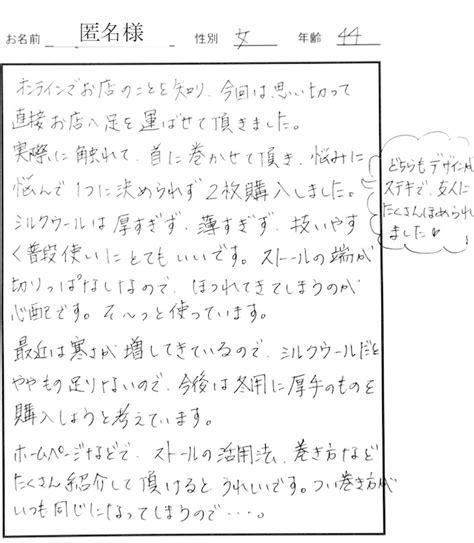 お名前 匿名様 性別 女 年齢 44
オンラインでお店のことを知り、今回は思い切って
直接お店へ足を運ばせて頂きました。
実際に触れて、首に巻かせて頂き、悩みに
悩んで1つに決められず2枚購入しました。
シルクウールは厚すぎず、薄すぎず、扱いやす
く普段使いにとてもいいです。ストールの端が
切りっぱなしなので、ほつれてきてしまうのが
心配です。そ〜っと使っています。
最近は寒さが増してきているので、シルクウールだと
やや もの足りないので、今後は冬用に厚手のものを
購入しようと考えています。
ホームページなどで、ストールの活用法、巻き方など
たくさん紹介して頂けるとうれしいです。つい巻き方が
いつも同じになってしまうので・・・・。
どちらもデザインが
ステキで、友人に
たくさんほめられ
ました♡